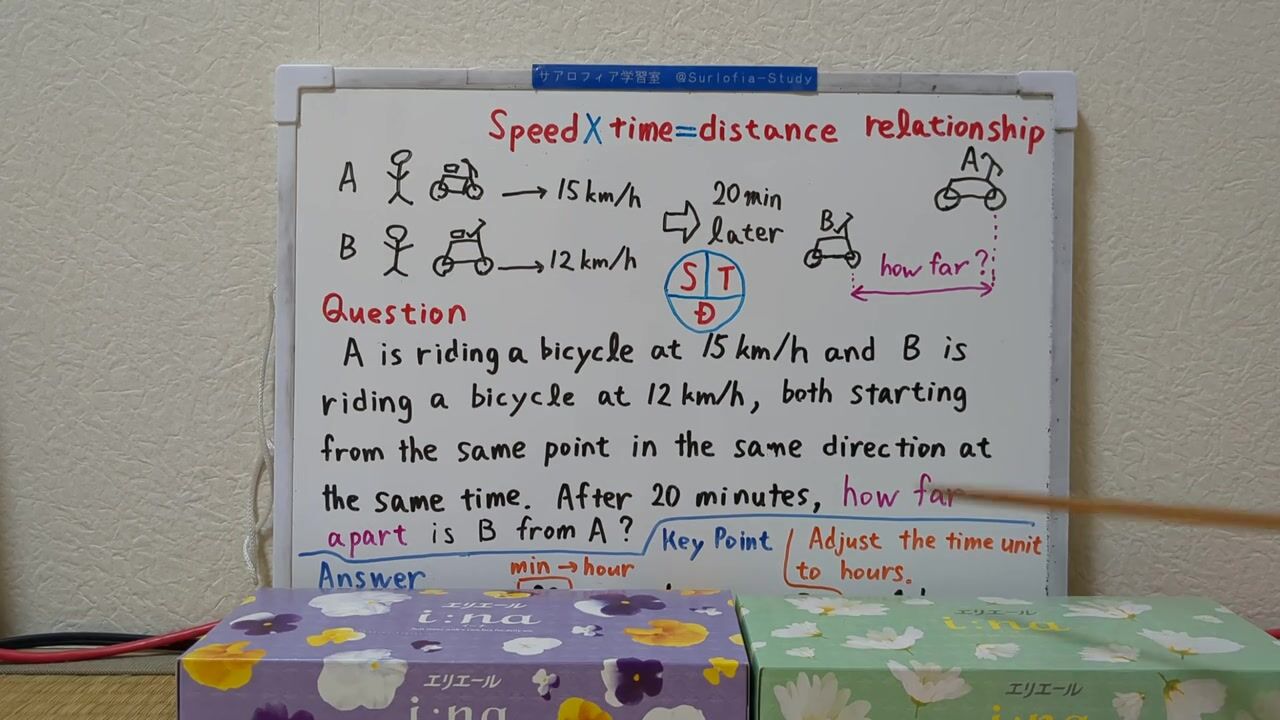 サアロフィア学習室 @Surlofia-Study
Speed X time = distance relationship
A → 15 km/h
B → 12 km/h
20 min
later
S T
D
B
A
how far?
Question
A is riding a bicycle at 15 km/h and B is
riding a bicycle at 12 km/h, both starting
from the same point in the same direction at
the same time. After 20 minutes, how far
apart is B from A?
Key Point
Adjust the time unit
to hours.
Answer
min → hour
エリエール
i:na
エリエール
i:na
エリエール
i:na
エリエール
i:na